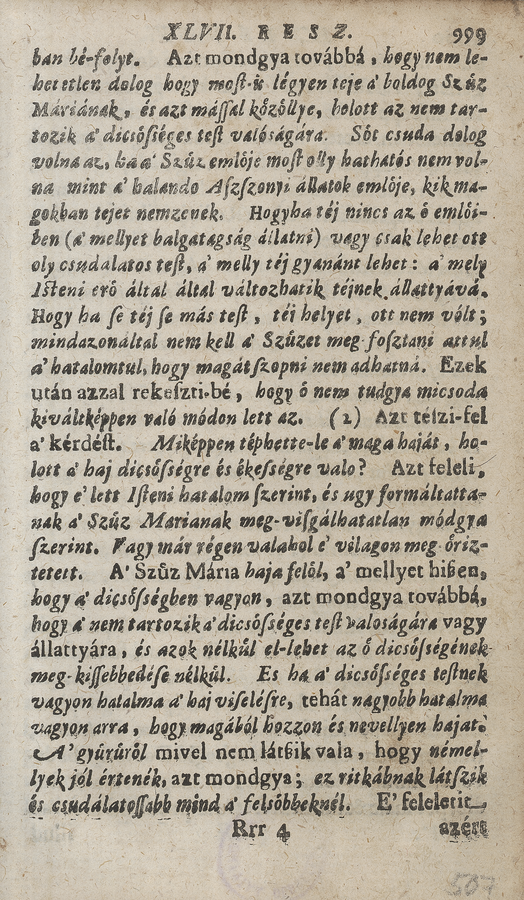 XLVII. RESZ. 999
ban bé-folyt. Azt mondgya továbbá, hogy nem le-
hetetlen dolog hogy moſt-is légyen teje a' boldog Szűz
Máriának, és azt máſſal közöllye, holott az nem tar-
tozik a' dicsőſséges teſt valóságára. Sőt csuda dolog
volna az, ha a' Szűz emlője moſt olly hathatós nem vol-
na mint a' halandó Aſzſzonyi állatok emlője, kik ma-
gokban tejet nemzenek. Hogyha téj nincs az ő emlői-
ben (a' mellyet balgatagság állatni) vagy csak lehet ott
oly csudálatos teſt, a' melly téj gyanánt lehet: a' mely
Iſteni erő által által változhatik téjnek állattyává.
Hogy ha ſe téj ſe más teſt, téj helyet, ott nem vólt;
mindazonáltal nem kell a' Szűzet meg-foſztani attul
a' hatalomtul, hogy magát ſzopni nem adhatná. Ezek
után azzal rekeſzti-bé, hogy ő nem tudgya micsoda
kiváltképpen való módon lett az. (2) Azt téſzi-fel
a' kérdéſt. Miképpen téphette-le a' maga haját, ho-
lott a' haj dicsőſségre és ékeſségre valo? Azt feleli,
hogy e' lett Iſteni hatalom ſzerint, és ugy formáltatta-
nak a' Szűz Marianak meg-viſgálhatatlan módgya
ſzerint. Vagy már régen valahol e' világon meg-őriz-
tetett. A' Szűz Mária haja felől, a' mellyet hiſzen,
hogy a' dicsőſségben vagyon, azt mondgya továbbá,
hogy a' nem tartozik a' dicsőſséges teſt valoságára vagy
állattyára, és azok nélkűl el-lehet az ő dicsőſségének
meg-kiſſebbedéſe nélkűl. Es ha a' dicsőſséges teſtnek
vagyon hatalma a' haj viſeléſre, tehát nagyobb hatalma
vagyon arra, hogy magából hozzon és nevellyen hajat.
A' gyűrűről mivel nem látſzik vala, hogy némel-
lyek jól értenék, azt mondgya; ez ritkábnak látſzik
és csudálatoſſabb mind a' felsőbbeknél. E' feleletit
Rrr 4 azért
507